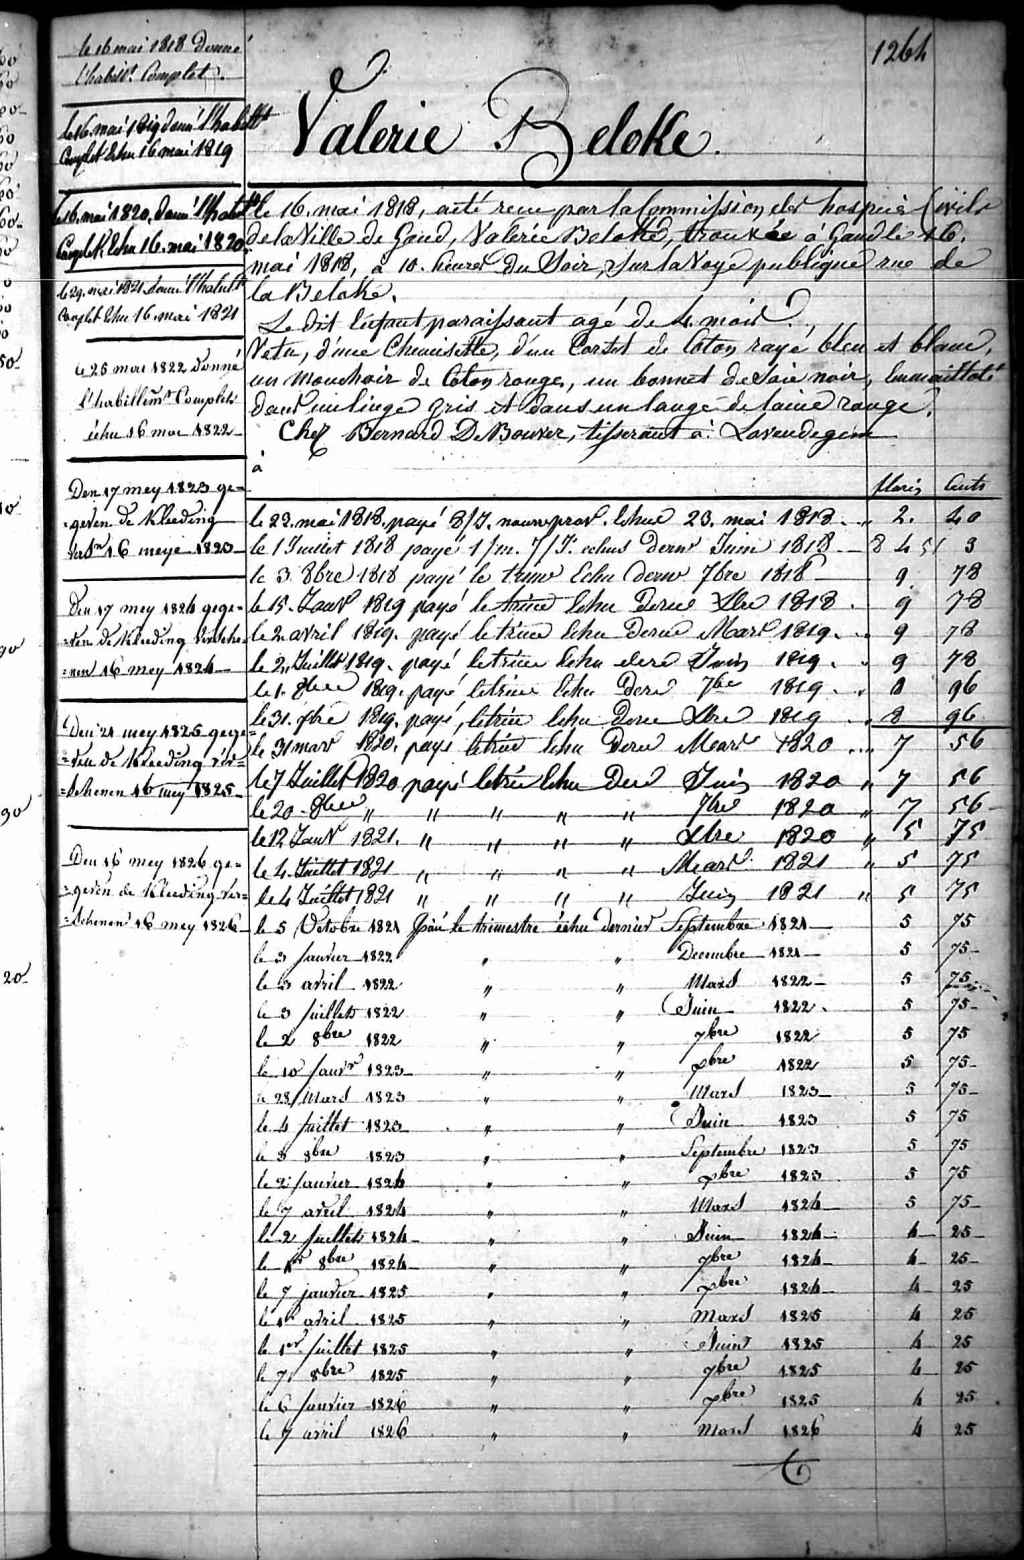 1264
Valerie Beloke.
le 16 mai 1818 Donné
l'habillt Complet.
le 16 mai 1819 donné l'habillt
Complet Echu 16 mai 1819
le 16. mai 1820. donné l'habillt
Complet Echu 16. mai 1820
le 29. mai 1821 donné l'habillt
Complet Echu 16. mai 1821
le 25 mai 1822 Donné
l'habillemt Complet
échu 16 mai 1822
Den 17 mey 1823 ge=
geven de Kleeding
16 meye 1823
Den 17 mey 1824 gege=
=ven de Kleeding versche=
=nen 16 mey 1824
Den 21 mey 1825 gege=
=ven de Kleeding ver=
=schenen 16 mey 1825
Den 16 mey 1826 ge=
=geven de Kleeding ver=
=schenen 16 mey 1826
le 16. mai 1818, a été recu par la Commission des hospices Civils
de la Ville de Gand, Valerie Beloke, trouvée a Gand le 16.
mai 1818, a 10. heures du Soir, Sur la Voye publique rue de
la Beloke.
Le dit Enfant paraissant agé de 4. mois.
Vetu, d'une Chemisette, d'un Corset de Coton rayé bleu et blanc,
un Mouchoir de Coton rouge, un bonnet de Soie noir, Emmailloté
dans un linge gris et dans un lange de laine rouge.
Chez Bernard De Bouver, tisserant a Lovendegem
à
florins Cents
le 22. mai 1818. payé 8/J. nourr prov. Echus 23. mai 1818 2. 40
le 1 Juillet 1818 payé 1/m. 7/J. echus dernr Juin 1818 3
le 3 8bre 1818 payé le trimr Echu dernr 7bre 1818 9. 78
le 15. Janvr 1819 payé le trime Echu derne Xbre 1818. 9 78
le 2 avril 1819. payé le trime Echu derne Mars 1819. 9 78
le 2. Juillet 1819. payé le trime Echu dere Juin 1819. 9 78
le 1. 8bre 1819. payé le trime Echu Dere 7bre 1819. 8 96
le 31. Xbre 1819. payé, le trime Echu derne Xbre 1819 8 96
le 31 mars 1820. payé le trime Echu Dere Mars 1820 7 56
le 7 Juillet 1820 payé le trime Echu Der Juin 1820 7 56
le 20 8bre " " " " " 7bre 1820 7 56
le 12 Janvr 1821. " " " " Xbre 1820 5 75
le 4. Juillet 1821 " " " " Mars 1821 5 75
le 4 Juillet 1821 " " " " Juin 1821 5 75
le 5 Octobre 1821 payé le trimestre échu dernier Septembre 1821 5 75
le 3 janvier 1822 " " Decembre 1821 5 75
le 3 avril 1822 " " Mars 1822 5 75
le 3 juillets 1822 " " Juin 1822. 5 75
le 2 8bre 1822 " " 7bre 1822 5 75
le 10 janvr 1823 " " Xbre 1822 5 75
le 28 Mars 1823 " " Mars 1823 5 75
le 4 juillet 1823 " " Juin 1823 5 75
le 3 8bre 1823 " " Septembre 1823 5 75
le 2 janvier 1824 " " Xbre 1823 5 75
le 7 avril 1824 " " Mars 1824 5 75
le 2 juillets 1824 " " Juin 1824 4 25
le 1er 8bre 1824 " " 7bre 1824 4 25
le 7 janvier 1825 " " Xbre 1824 4 25
le 1er avril 1825 " " Mars 1825 4 25
le 1er juillet 1825 " " Juin 1825 4 25
le 7 8bre 1825 " " 7bre 1825 4 25
le 6 janvier 1826 " " Xbre 1825 4 25
le 7 avril 1826 " " Mars 1826 4 25